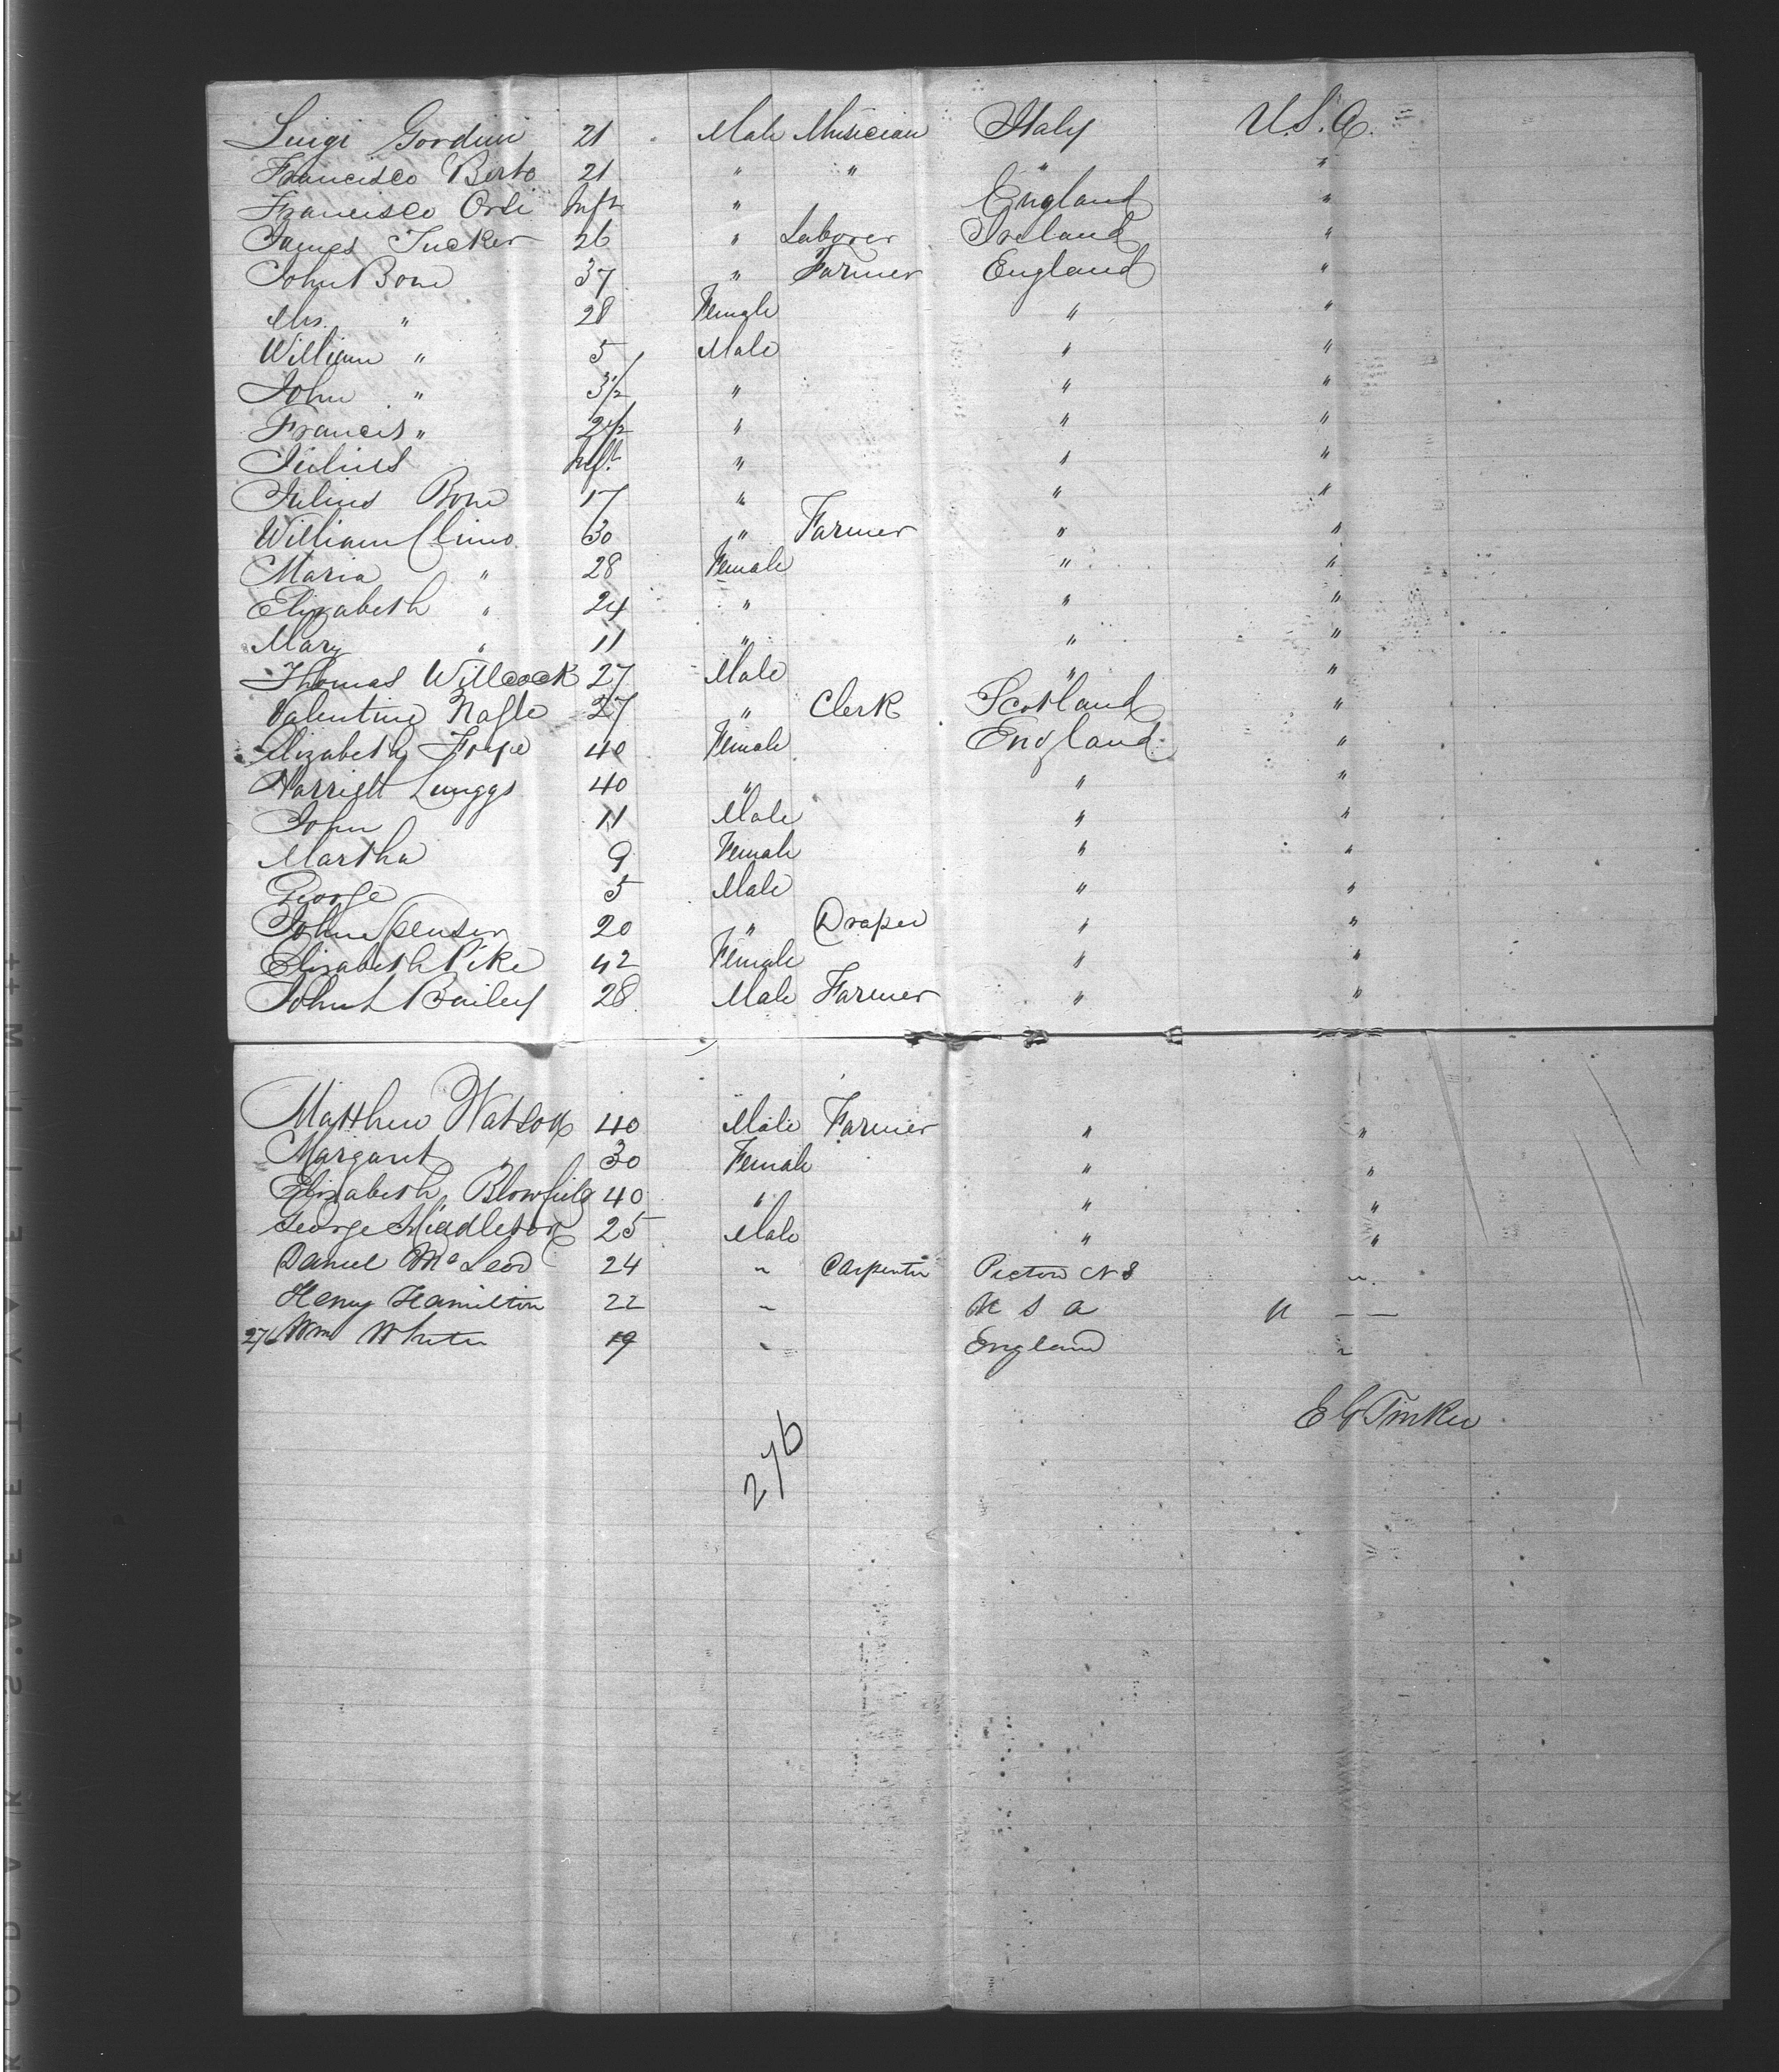 Luigi Gordini 21 Male Musician Italy U.S.A.
Francisco Berto 21 " " " "
Francisco Orli Inft " England "
James Tucker 26 " Laborer Ireland "
John Bone 37 " Farmer England "
Mrs. " 28 Female " "
William " 5 Male " "
John " 3 1/2 " " "
Francis " 2 1/2 " " "
Julius Inft " " "
Julius Bone 17 " " "
William Climo 30 " Farmer " "
Maria " 28 Female " "
Elizabeth " 24 " " "
Mary " 11 " " "
Thomas Willcock 27 Male " "
Valentine Nagle 27 " Clerk Scotland "
Elizabeth 40 Female England "
Harriett 40 " " "
John 11 Male " "
Martha 9 Female " "
George 5 Male " "
John Spenser 20 " Draper " "
Elizabeth Pike 42 Female " "
John L Bailey 28 Male Farmer " "
Matthew Watson 40 Male Farmer " "
Margaret " 30 Female " "
Elizabeth Blowfield 40 " " "
George Middleton 25 Male " "
Daniel McLeod 24 " Carpenter Pictou NS "
Henry Hamilton 22 " U S A U — —
276 Wm White 19 " England "
E C Tinker
276